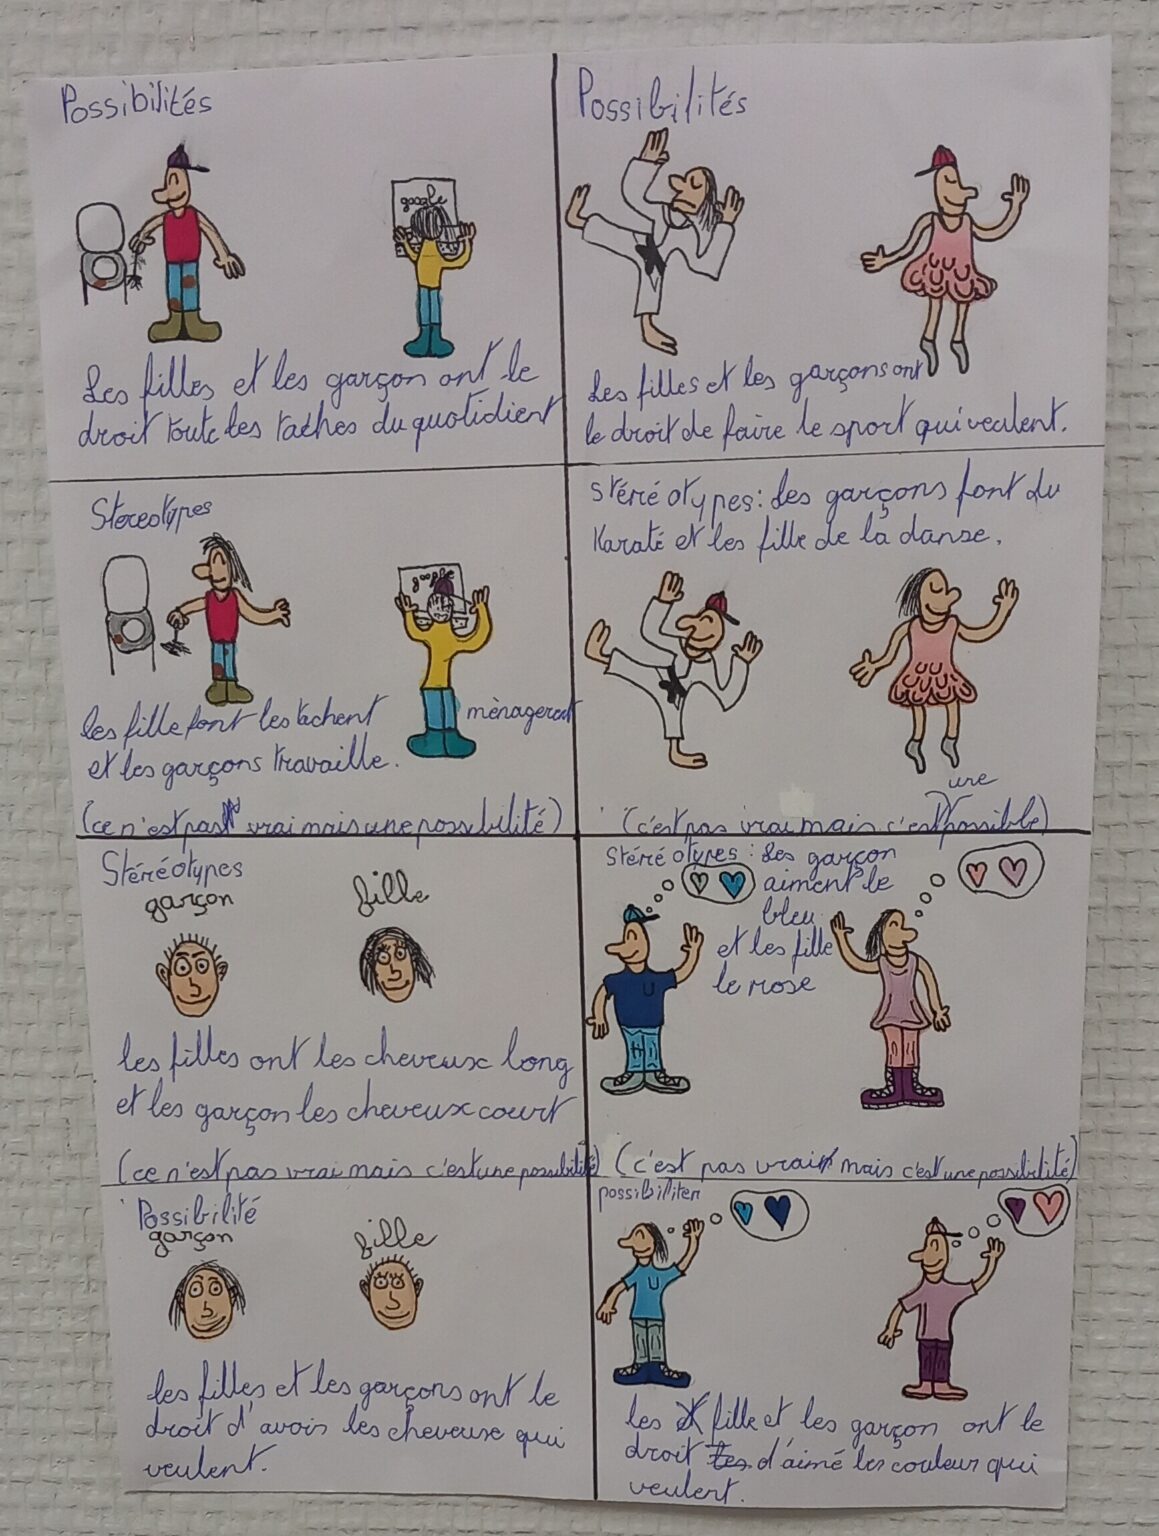 Possibilités
google
Les filles et les garçon ont le
droit toute les taches du quotidient
Possibilités
Les filles et les garçons ont
le droit de faire le sport qui veulent.
Stereotypes
google
les fille font les tachent ménagerent
et les garçons travaille.
(ce n'est pas vrai mais une possibilité)
Stéréotypes : Les garçons font du
Karaté et les fille de la danse.
(c'est pas vrai mais c'est une possible)
Stéréotypes
garçon fille
les filles ont les cheveux long
et les garçon les cheveux court
(ce n'est pas vrai mais c'est une possibilité)
Stéréotypes : Les garçon
aiment le
bleu
et les fille
le rose
(c'est pas vrai mais c'est une possibilité)
Possibilité
garçon fille
les filles et les garçons ont le
droit d'avois les cheveuse qui
veulent.
possibiliter
les fille et les garçon ont le
droit tes d'aimé les couleur qui
veulent.